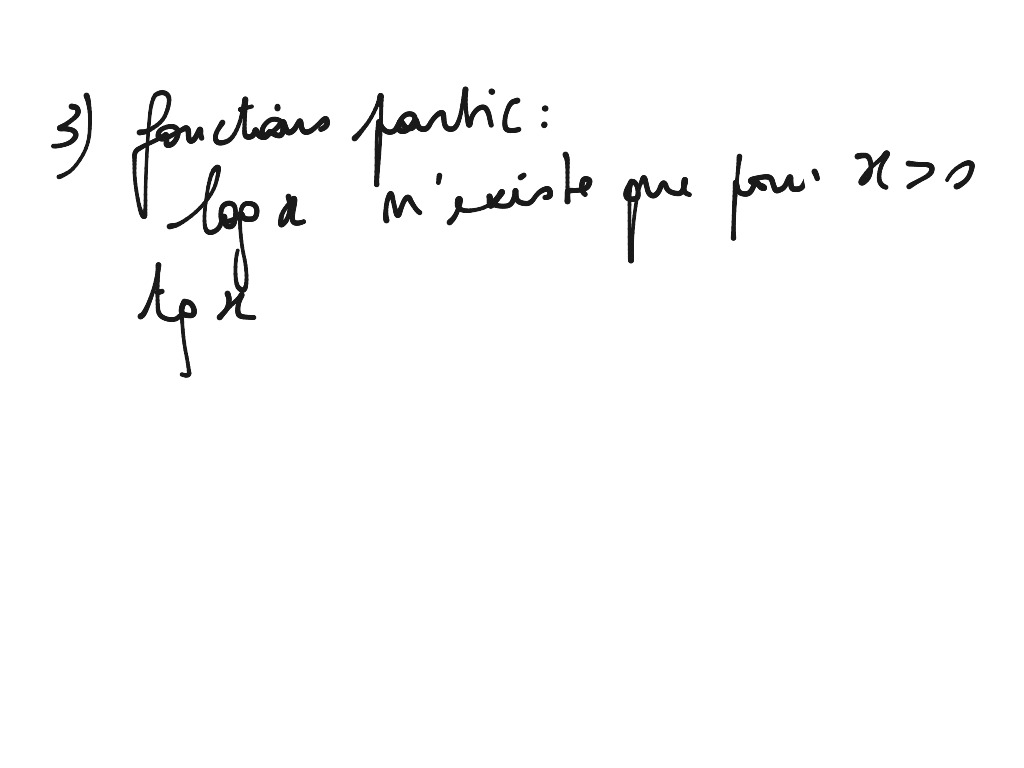 3) fonctions partic :
log x n'existe que pour x > 0
tg x